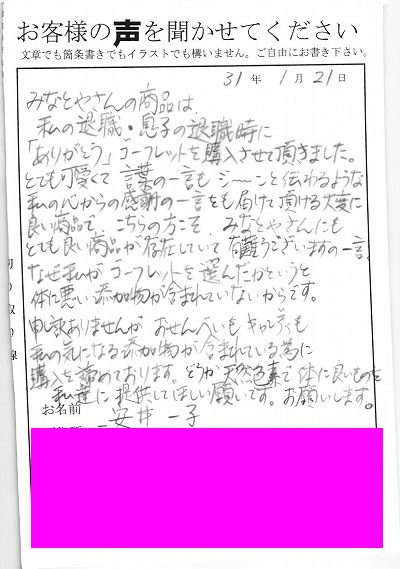 お客様の声を聞かせてください
文章でも箇条書きでもイラストでも構いません。ご自由にお書き下さい。
31年 1月21日
みなとやさんの商品は、
私の退職・息子の退職時に
「ありがとう」ゴーフレットを購入させて頂きました。
とても可愛くて 言葉の一言も ジーンと伝わるような
私の心からの感謝の一言をも届けて頂ける大変に
良い商品で、こちらの方こそ、みなとやさんにも
とても良い商品が存在していて有難うございますの一言。
なぜ私が ゴーフレットを選んだかというと
体に悪い添加物が含まれていないからです。
申訳ありませんが おせんべいも キャンディも
私の気になる添加物が含まれている為に
購入を諦めております。どうか天然色素で体に良いものを
私達に提供してほしい願いです。お願いします。
お名前
安井 一子
切り取り線